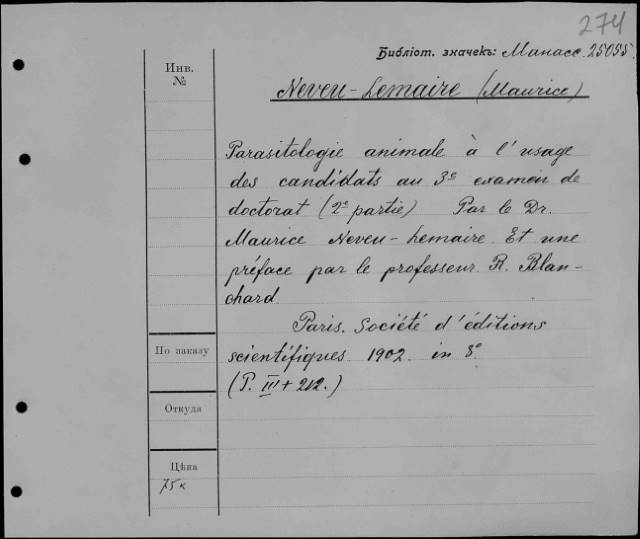 274
Библіот. значекъ: Манасс. 25055.
Инв.
№
Neveu-Lemaire (Maurice)
Parasitologie animale à l'usage
des candidats au 3e examen de
doctorat (2e partie) Par le Dr.
Maurice Neveu-Lemaire. Et une
préface par le professeur R. Blan-
chard.
Paris. Société d'éditions
scientifiques. 1902. in 8°.
(P. III + 212.)
По заказу
Откуда
Цѣна
75 к